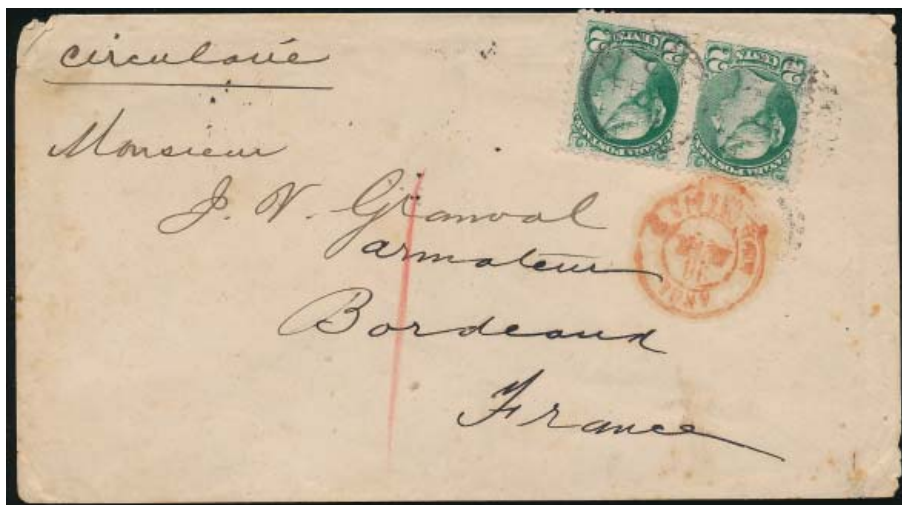 circulaire
Monsieur
J. V. Granval
armateur
Bordeaux
France
2 CENTS 2
2 CENTS 2